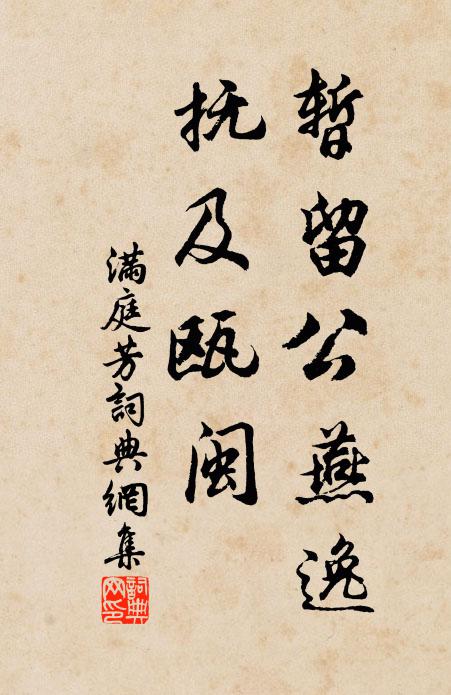 暂留公燕逸
抚及瓯闽
满庭芳詞典網集
詞典網印